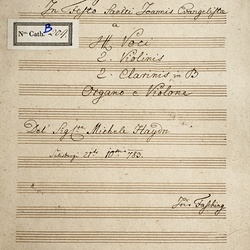 In Festo Sancti Joannis Evangelistae
Nro Cath. B 109
a
4 Voci
2. Violinis
2. Clarinis in B
Organo e Violone
Del Sig re Michele Haydn
Salisburgi 21 10 783.